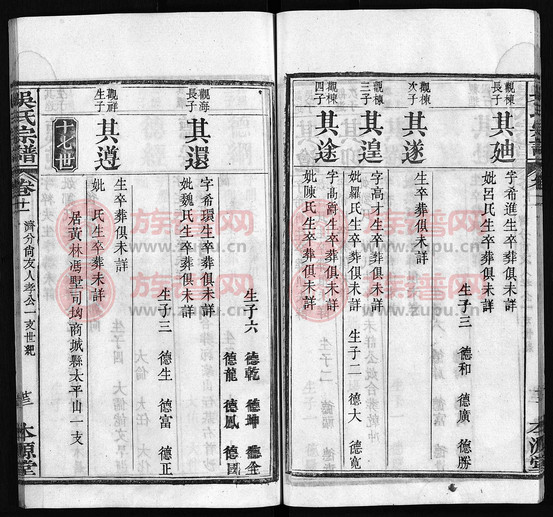 觀棟
長子
其廸
字希進生卒葬俱未詳
妣呂氏生卒葬俱未詳
生子三 德和 德廣 德勝
觀棟
次子
其遂
生卒葬俱未詳
觀棟
三子
其遑
字高才生卒葬俱未詳
妣羅氏生卒葬俱未詳
生子二 德大 德寬
觀棟
四子
其途
字高爵生卒葬俱未詳
妣陳氏生卒葬俱未詳
本源堂
吳氏宗譜
卷十一
濟分尙友人孝公一支世親
本源堂
觀海
長子
其還
字希環生卒葬俱未詳
妣魏氏生卒葬俱未詳
生子六 德乾 德坤 德全
德龍 德鳳 德國
觀祥
生子
其遵
生卒葬俱未詳
妣 氏生卒葬未詳
生子三 德生 德富 德正
十七世
居黃林馮墅司坳商城縣太平山一支
族譜网
www.zupu.cn
族譜网
www.zupu.cn
族譜网
www.zupu.cn